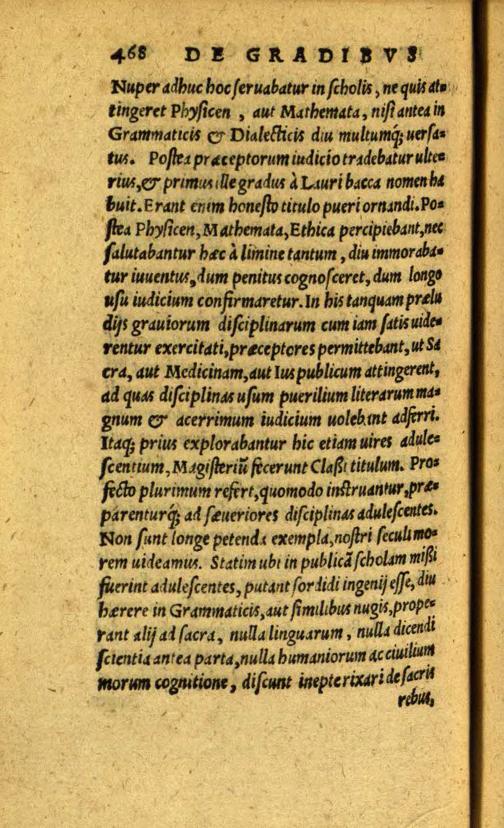 468 DE GRADIBVS
Nuper adhuc hoc seruabatur in scholis, ne quis at=
tingeret Physicen , aut Mathemata, nisi antea in
Grammaticis & Dialecticis diu multumq́; uersa=
tus. Postea præceptorum iudicio tradebatur ulte=
rius,& primus ille gradus à Lauri bacca nomen ha
buit. Erant enim honesto titulo pueri ornandi. Po=
stea Physicen, Mathemata, Ethica percipiebant, nec
salutabantur hæc à limine tantum, diu immoraba=
tur iuuentus, dum penitus cognosceret, dum longo
usu iudicium confirmaretur. In his tanquam prælu
dijs grauiorum disciplinarum cum iam satis uide=
rentur exercitati, præceptores permittebant, ut Sa
cra, aut Medicinam, aut Ius publicum attingerent,
ad quas disciplinas usum puerilium literarum ma=
gnum & acerrimum iudicium uolebant adferri.
Itaq; prius explorabantur hic etiam uires adule=
scentium, Magisteriū fecerunt Classi titulum. Pro=
fecto plurimum refert, quomodo instruantur, præ=
parenturq́; ad sæueriores disciplinas adulescentes.
Non sunt longe petenda exempla, nostri seculi mo=
rem uideamus. Statim ubi in publicā scholam missi
fuerint adulescentes, putant sordidi ingenij esse, diu
hærere in Grammaticis, aut similibus nugis, prope=
rant alij ad sacra, nulla linguarum , nulla dicendi
scientia antea parta, nulla humaniorum ac ciuilium
morum cognitione, discunt inepte rixari de sacris
rebus,